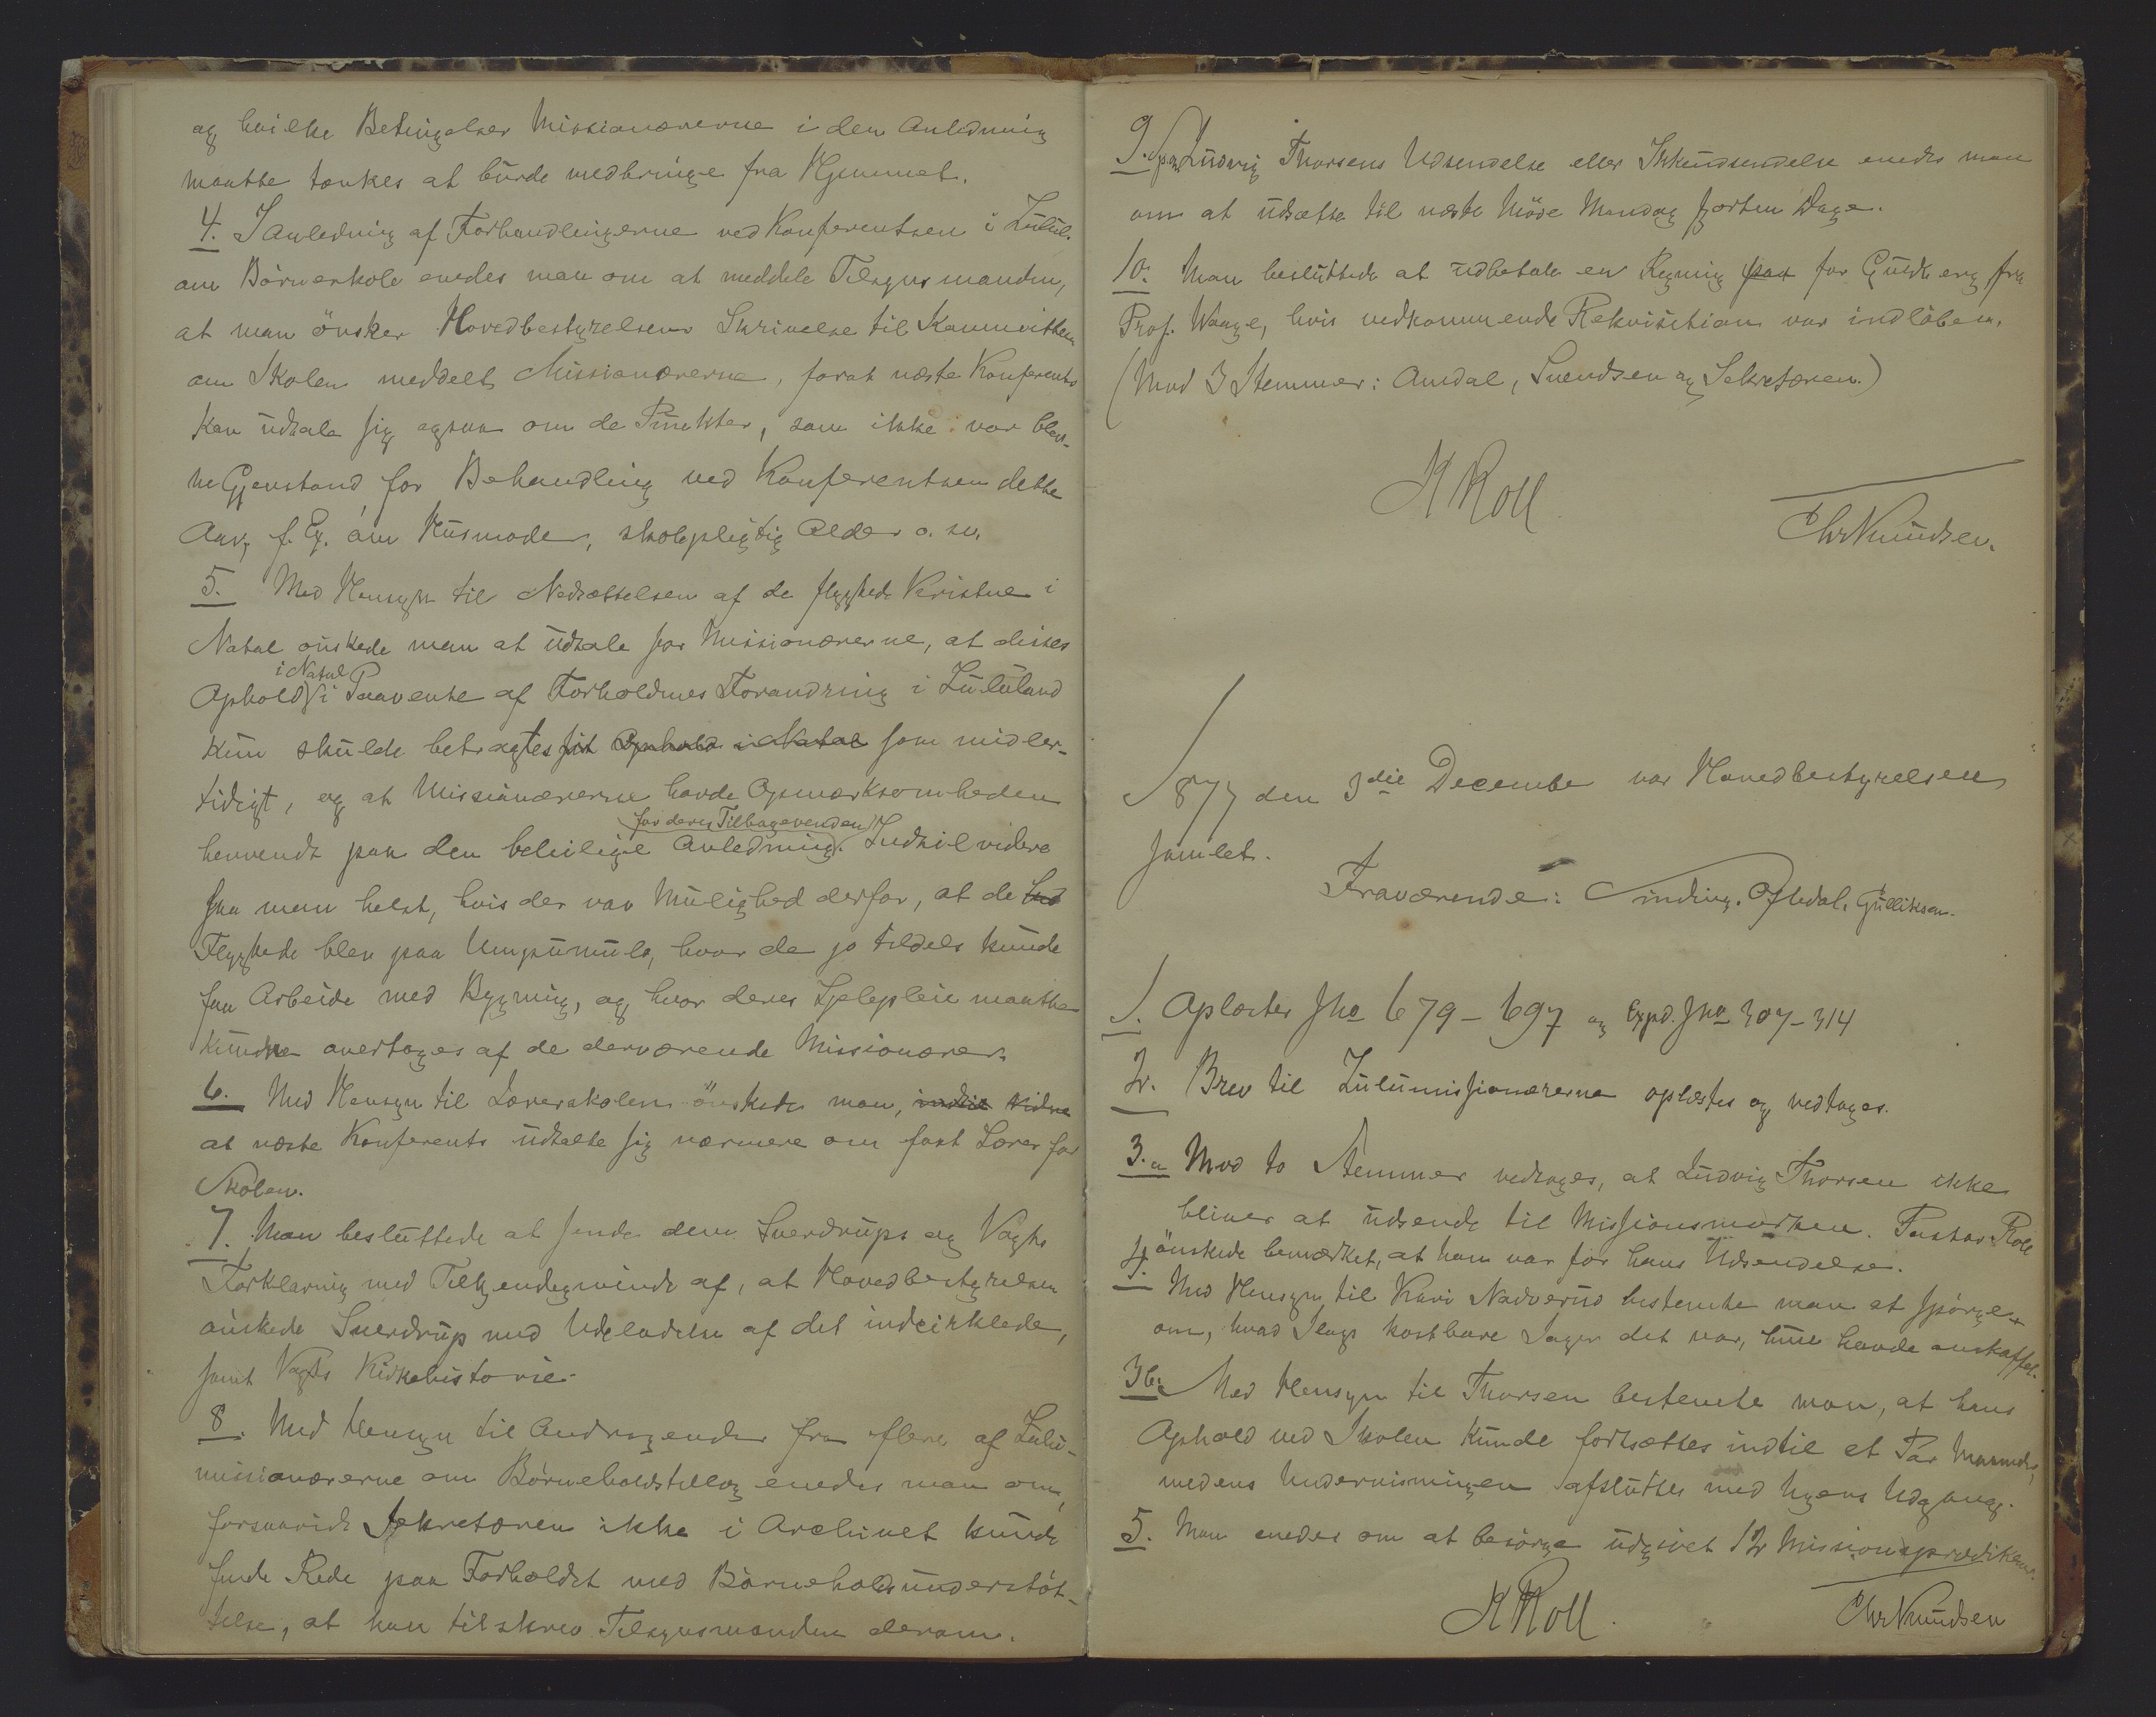 og hvilke Betingelser Missionærerne i den Anledning
maatte tænkes at burde medbringe fra Hjemmet.
4. I Anledning af Forhandlingerne ved Konferentsen i Zulul.
om Börneskole enedes man om at meddele Tilsynsmanden,
at man önsker Hovedbestyrelsens Skrivelse til Kommitteen
om Skolen meddelt Missionærerne, forat næste Konferents
kan udtale sig ogsaa om de Punkter, som ikke var blev-
ne Gjenstand for Behandling ved Konferentsen dette
Aar, f. Ex. om Husmoder, skolepligtig Alder o. sv.
5. Med Hensyn til Nedsættelsen af de flygtede Kristne i
Natal önskede man at udtale for Missionærerne, at disses
i Natal
Ophold i Paavente af Forholdenes Forandring i Zululand
kun skulde betragtes sit Ophold i Natal som midler-
tidigt, og at Missionærerne havde Opmærksomheden
for deres Tilbagevenden
henvendt paa den beleilige Anledning. Indtil videre
saa man helst, hvis der var Mulighed derfor, at de
Flygtede blev paa Umpumulo, hvor de jo tildels kunde
faa Arbeide med Bygning, og hvor deres Sjelepleie maatte
kunne overtages af de derværende Missionærer.
6. Med Hensyn til Lærerskolen önskede man, indtil videre
at næste Konferents udtalte sig nærmere om fast Lærer for
Skolen.
7. Man besluttede at sende dem Sverdrups og Vogts
Forklaring med Tilkjendegivende af, at Hovedbestyrelsen
önskede Sverdrup med Udeladelse af det indcirklede,
samt Vogts Kirkehistorie.
8. Med Hensyn til Andragender fra flere af Zulu-
missionærerne om Börneholdstillæg enedes man om,
forsaavidt Sekretæren ikke i Archivet kunde
finde Rede paa Forholdet med Börneholdsunderstöt-
telse, at han tilskrev Tilsynsmanden derom.
9. Ludvig Thorsens Udsendelse eller Ikkeudsendelse enedes man
om at udsætte til næste Möde Mandag fjorten Dage.
10. Man besluttede at udbetale en Regning paa for Guldberg fra
Prof. Waage, hvis vedkommende Rekvisition var indlöben.
(Mod 3 Stemmer: Amdal, Svendsen og Sekretæren.)
K Roll
Chr Knudsen.
1877 den 3die December var Hovedbestyrelsen
samlet.
Fraværende: Oftedal, Gulliksen.
1. Oplæstes Jno 679-697 og Exped. Jno 307-314
2. Brev til Zulumissionærerne oplæstes og vedtoges.
3.a Mod to Stemmer vedtoges, at Ludvig Thorsen ikke
bliver at udsende til Missionsmarken. Pastor Roll
önskede bemærket, at han var for hans Udsendelse.
4. Med Hensyn til Kari Nadverud bestemte man at spörge
om, hvad Slags kostbare Sager det var, hun havde anskaffet.
3b. Med Hensyn til Thorsen bestemte man, at hans
Ophold ved Skolen kunde fortsættes indtil et Par Maaneder,
medens Undervisningen afsluttes med Ugens Udgang.
5. Man enedes om at besörge udgivet 12 Missionsprædikener.
K Roll.
Chr Knudsen